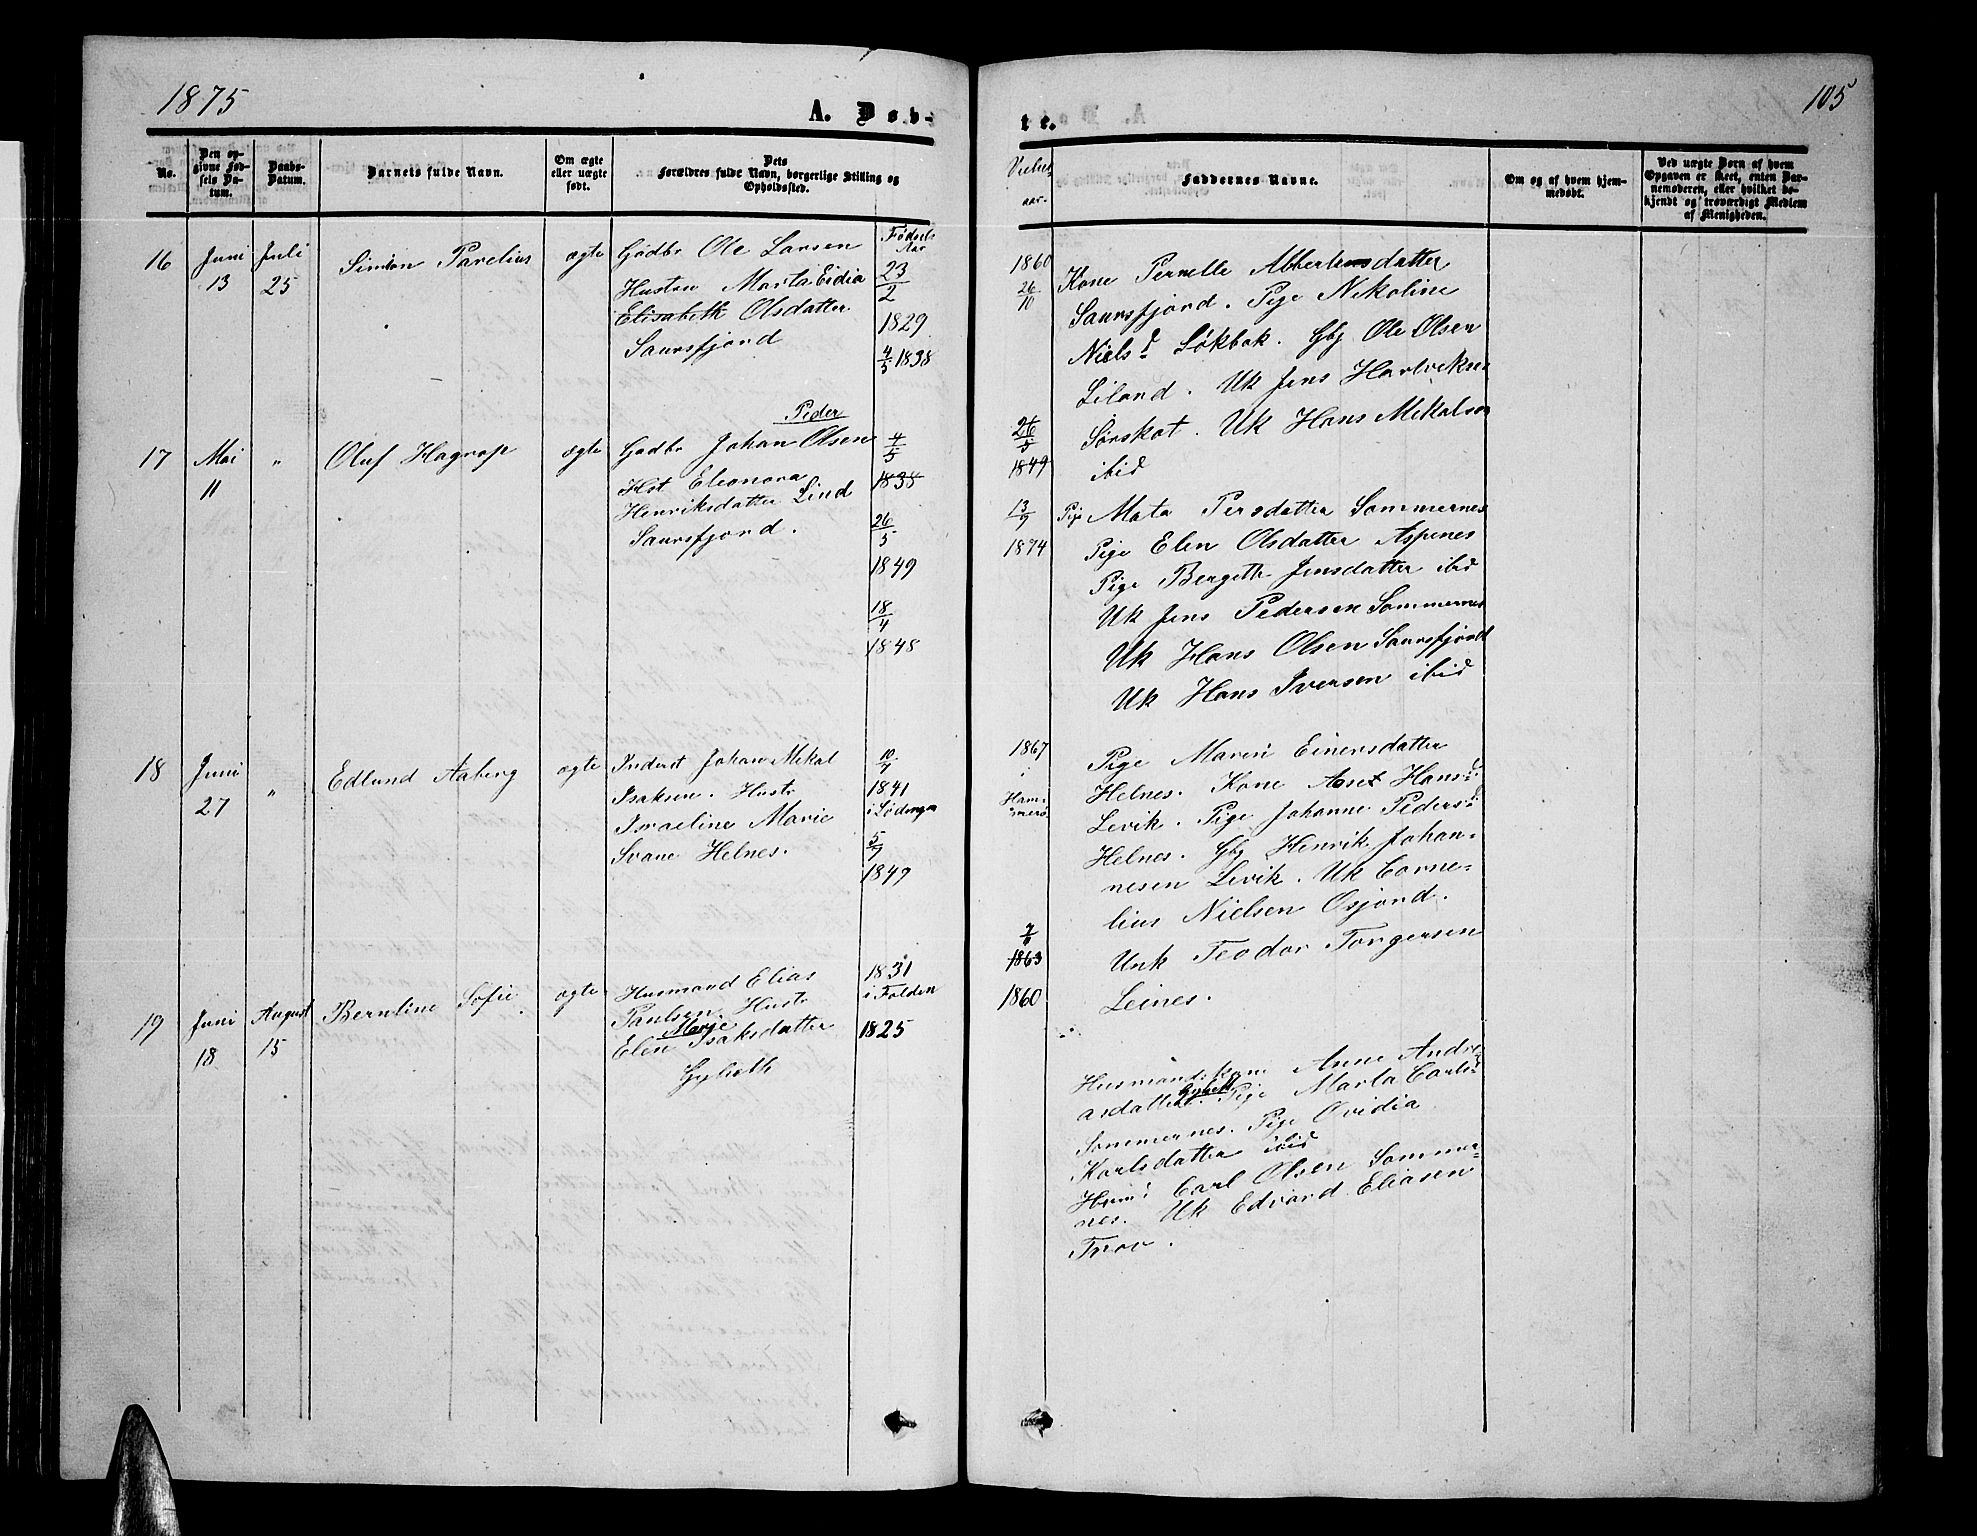 1875
A. Døb-
te.
105
No.
Den op-
givne Fød-
sels Da-
tum.
Daabs-
Datum.
Barnets fulde Navn.
Om ægte
eller uægte
født.
Dets
Forældres fulde Navn, borgerlige Stilling og
Opholdssted.
Vielses
aar.
Faddernes Navne.
Om og af hvem hjem-
medøbt.
Ved uægte Born af hvem
Opgaven er skeet, enten Bar-
nemoderen, eller hvilket be-
kjendt og troværdigt Medlem
af Menigheden.
Fødsels
Aar
16
Juni
13
Juli
25
Simon Parelius
ægte
Gadbr Ole Larsen
Hustru Marta Eidia
Elisabeth Olsdatter
Saursfjord
23
2
1829
4
5 1838
1860
26
10
Kone Pernelle Abbertensdatter
Saursfjord. Pige Nikoline
Nielsd Løkbak. Gbg Ole Olsen
Liland. Uk Jens Hartviksen
Sørskot. Uk Hans Mikalsen
ibid
17
Mai
11
"
Oluf Hagrop
ægte
Peder
Gadbr Johan Olsen
Hst Eleonora
Henriksdatter Lind
Saursfjord.
4
5
1835
26
5
1849
18
4
1848
26
5
1849
13
9
1874
Pige Mata Persdatter Sommernes
Pige Elen Olsdatter Aspenes
Pige Bergeth Jensdatter ibid
Uk Jens Pedersen Sommernes
Uk Hans Olsen Saursfjord
Uk Hans Iversen ibid
18
Juni
27
"
Edlund Aaberg
ægte
Inderst Johan Mikal
Isaksen. Hustr
Israeline Marie
Svane Helnes.
10
7
1841
i Lødingen
5
7
1849
1867
i
Ham-
merø
Pige Maren Einersdatter
Helnes. Kone Anet Hansd
Levik. Pige Johanne Pedersd
Helnes. Gbg Henrik Johan-
nesen Levik. Uk Corne-
lius Nielsen Osjord.
Unk Teodor Torgersen
Leines.
19
Juni
18
August
15
Berntine Sofie
ægte
Husmand Elias
Paulsen. Hustr
Marie
Elen Isaksdatter
Gylseth
1831
i Folden
1825
7
1863
1860
Husmandskone Anne Andre-
asdatter Gylseth. Pige Marta Carlsd
Sommernes. Pige Ovidia
Karlsdatter ibid
Husmd Carl Olsen Sommer-
nes. Uk Edvard Eliasen